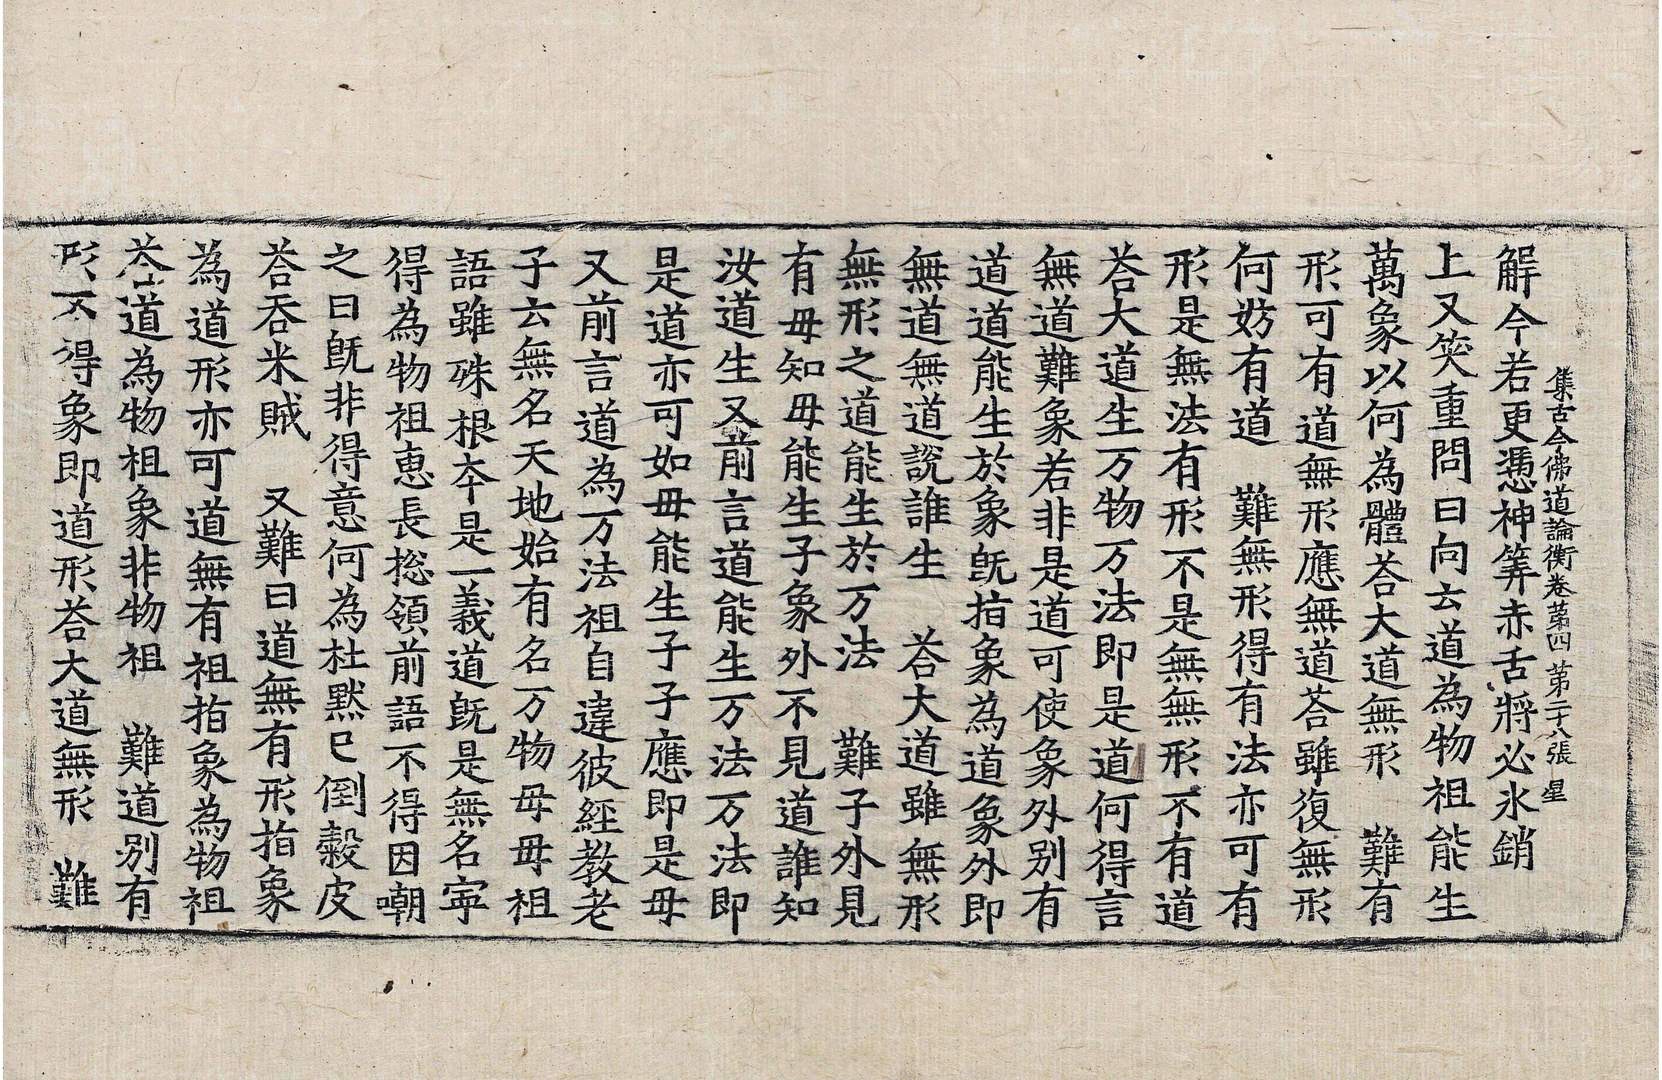 集古今佛道論衡卷第四 第二十八張 星
解今若更憑神筭赤舌將必氷銷
上又笑重問曰向云道為物祖能生
萬象以何為體荅大道無形 難有
形可有道無形應無道荅雖復無形
何妨有道 難無形得有法亦可有
形是無法有形不是無無形不有道
荅大道生万物万法即是道何得言
無道難象若非是道可使象外別有
道道能生於象旣指象為道象外即
無道無道說誰生 荅大道雖無形
無形之道能生於万法 難子外見
有母知母能生子象外不見道誰知
汝道生又前言道能生万法万法即
是道亦可如母能生子子應即是母
又前言道為万法祖自違彼經教老
子云無名天地始有名万物母母祖
語雖殊根夲是一義道旣是無名寕
得為物祖惠長捴領前語不得因嘲
之曰旣非得意何為杜黙已倒糓皮
荅吞米賊 又難曰道無有形指象
為道形亦可道無有祖指象為物祖
荅道為物祖象非物祖 難道別有
形不得象即道形荅大道無形 難